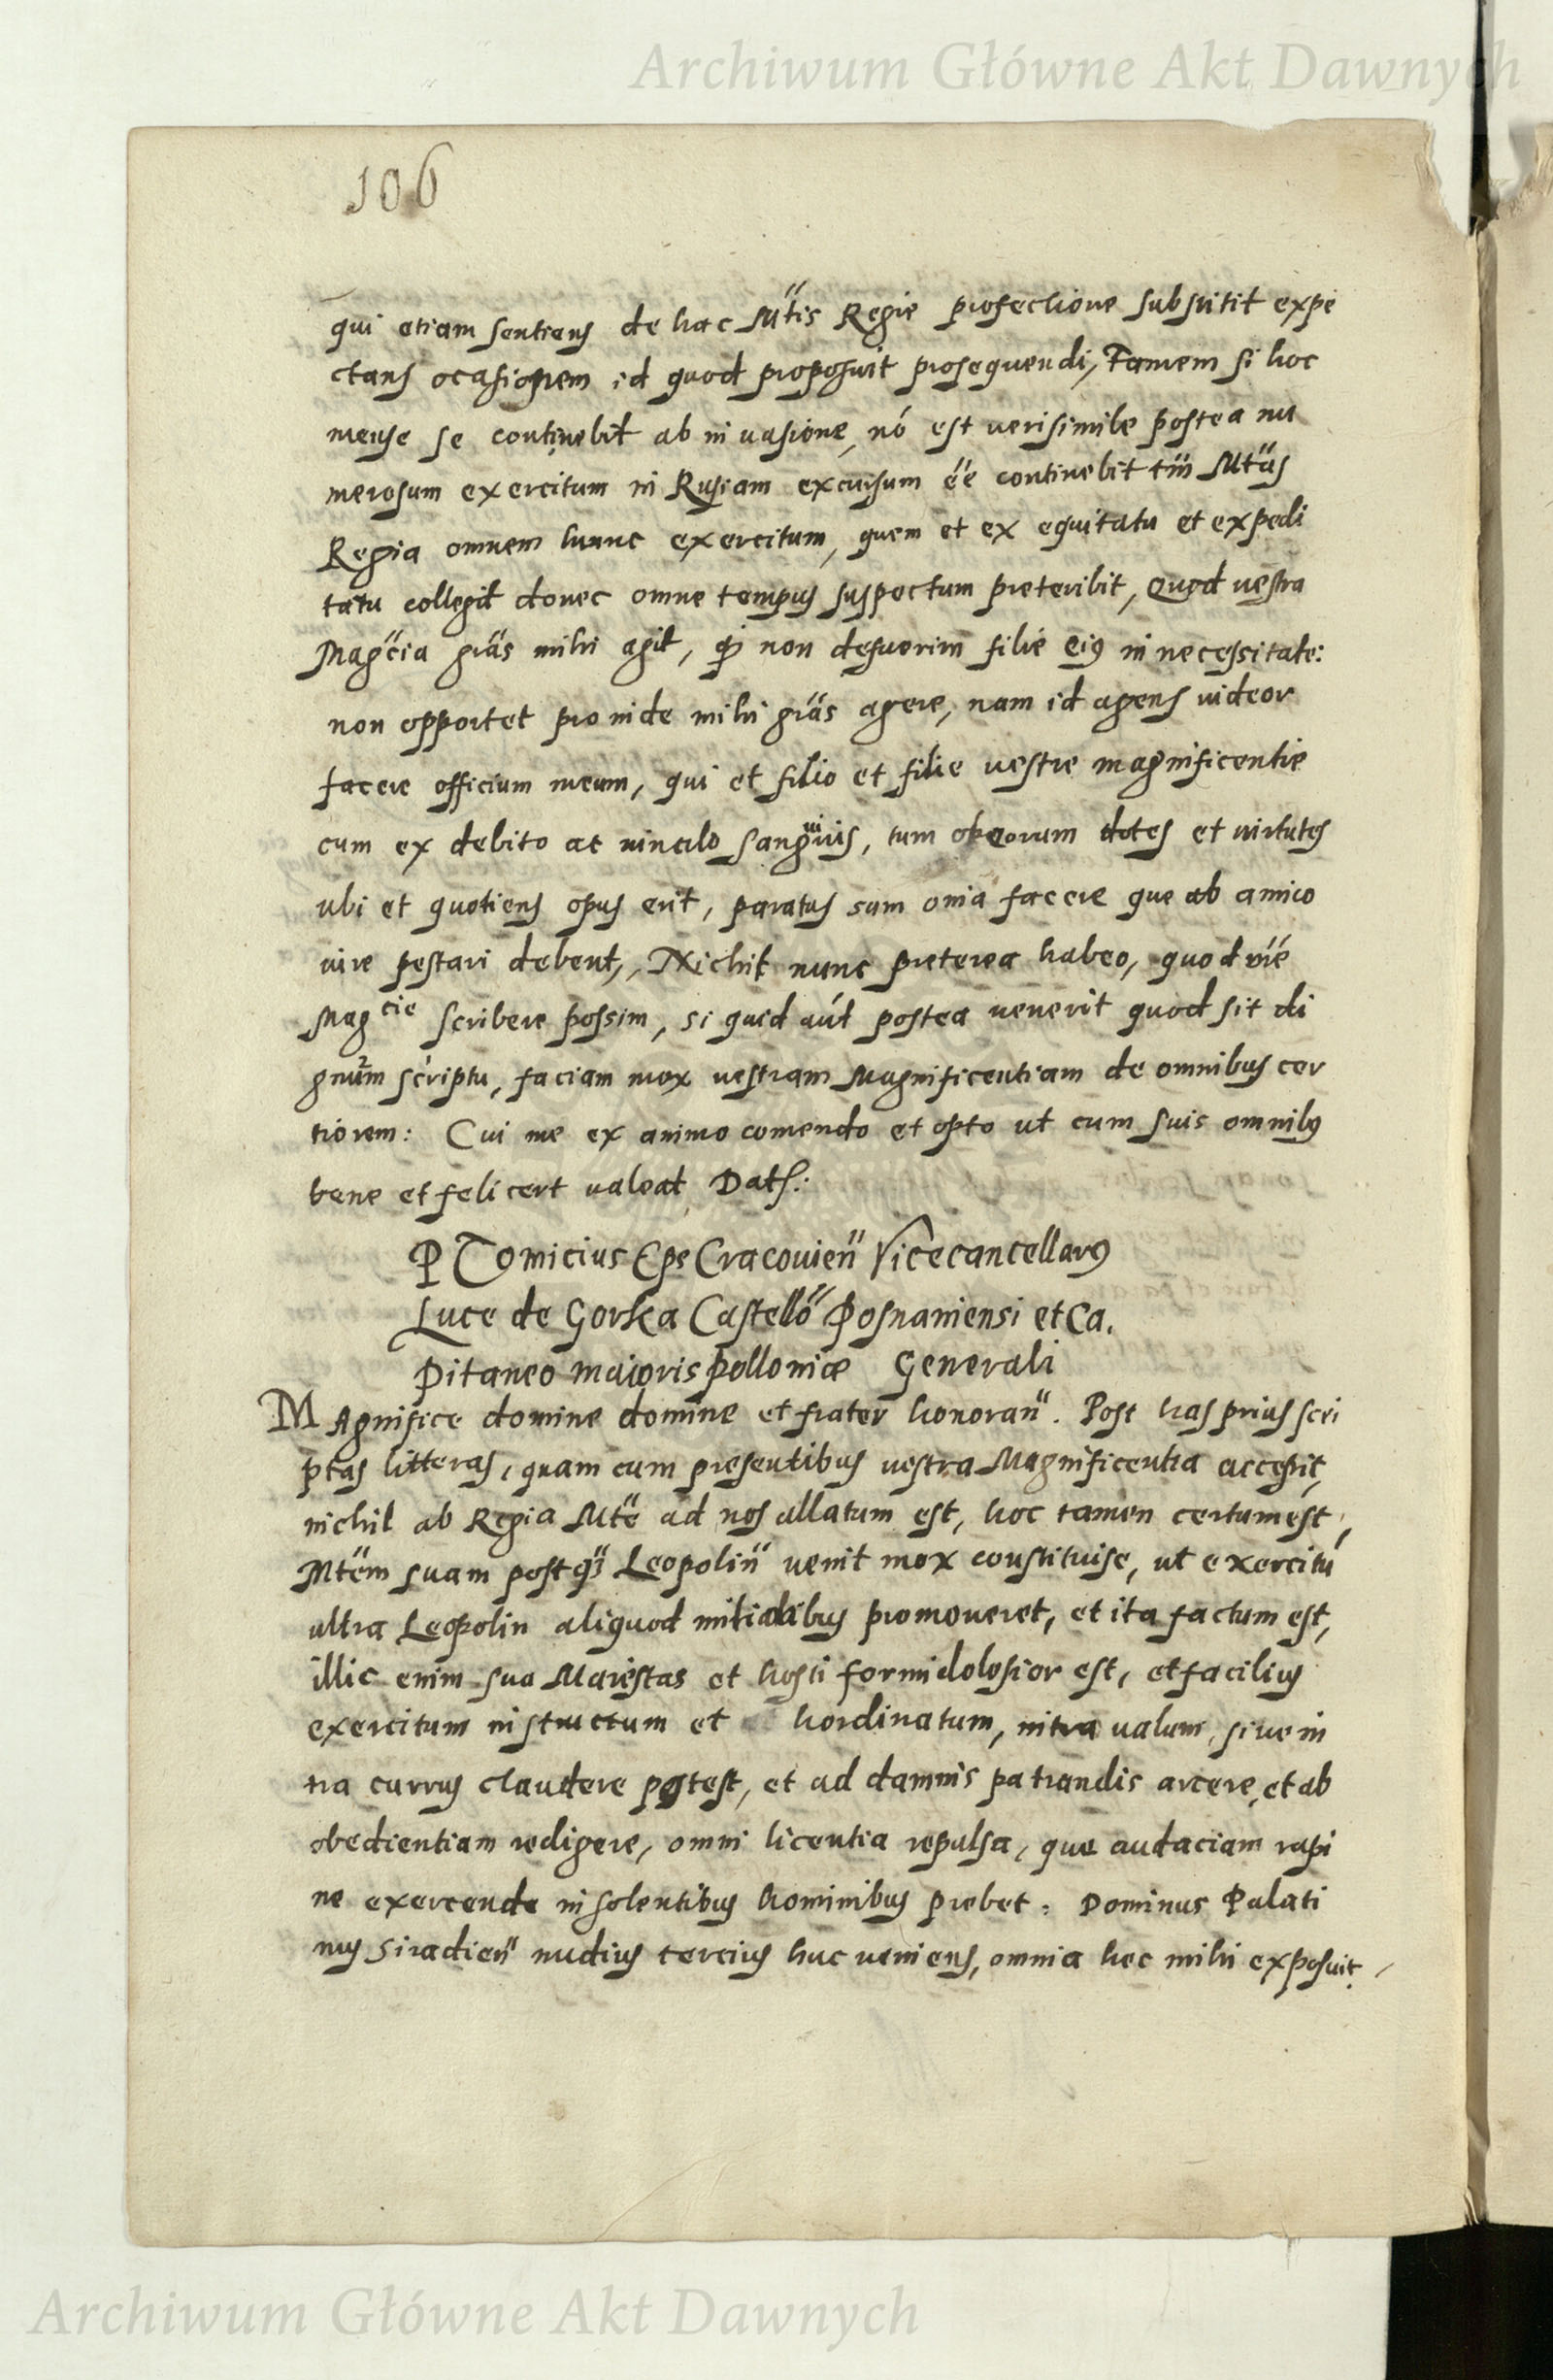 Archiwum Główne Akt Dawnych
106
qui etiam sentiens de hac Mtis Regie profectione substitit expe
ctans ocasionem id quod proposuit prosequendi, Tamem si hoc
mense se continebit ab invasione, nō est verisimile postea nu
merosum exercitum in Rusiam excursum ēē continebit tn̄ Mtas
Regia omnem hunc exercitum, quem et ex equitatu et expedi
tatu collegit donec omne tempus suspectum preteribit, Quod vestra
Magcia grās mihi agit, q̄ non defuerim filie eius in necessitate:
non opportet proinde mihi grās agere, nam id agens videor
facere officium meum, qui et filio et filie vestre magnificentie
cum ex debito ac vinculo sanguinis, tum ob eorum dotes et virtutes
ubi et quotiens opus erit, paratus sum om̄ia facere que ab amico
vire pestari debent, Nichil nunc preterea habeo, quod vrē
Magcie scribere possim, si quid aūt postea venerit quod sit di
gnum scriptu, faciam mox vestram Magnificentiam de omnibus cer
tiorem: Cui me ex animo comendo et opto ut cum suis omnibus
bene et felicert valeat Dat:
P Tomicius Eps Cracovien̄ Vicecancellarius
Luce de Gorka Castellō Posnaniensi et Ca.
pitaneo maioris polloniæ Generali
Magnifice domine domine et frater honoran̄. Post has prius scri
ptas litteras, quam cum presentibus vestra Magnificentia accepit,
nichil ab Regia Mte ad nos allatum est, hoc tamen certum est,
Mtem suam postq̄ Leopolin̄ venit mox constituise, ut exercitū
ultra Leopolin aliquod militibus promoveret, et ita factum est,
illic enim sua Maiestas et hosti formidolosior est, et facilius
exercitum instructum et hordinatum, intra valum, sive in
tra currus claudere potest, et ad damnis patrandis arcere, et ab
obedientiam redigere, omni licentia repulsa, que audaciam rapi
ne exercende insolentibus hominibus prebet: Dominus Palati
nus Siradien̄ nudius tercius huc veniens, omnia hec mihi exposuit,
Archiwum Główne Akt Dawnych